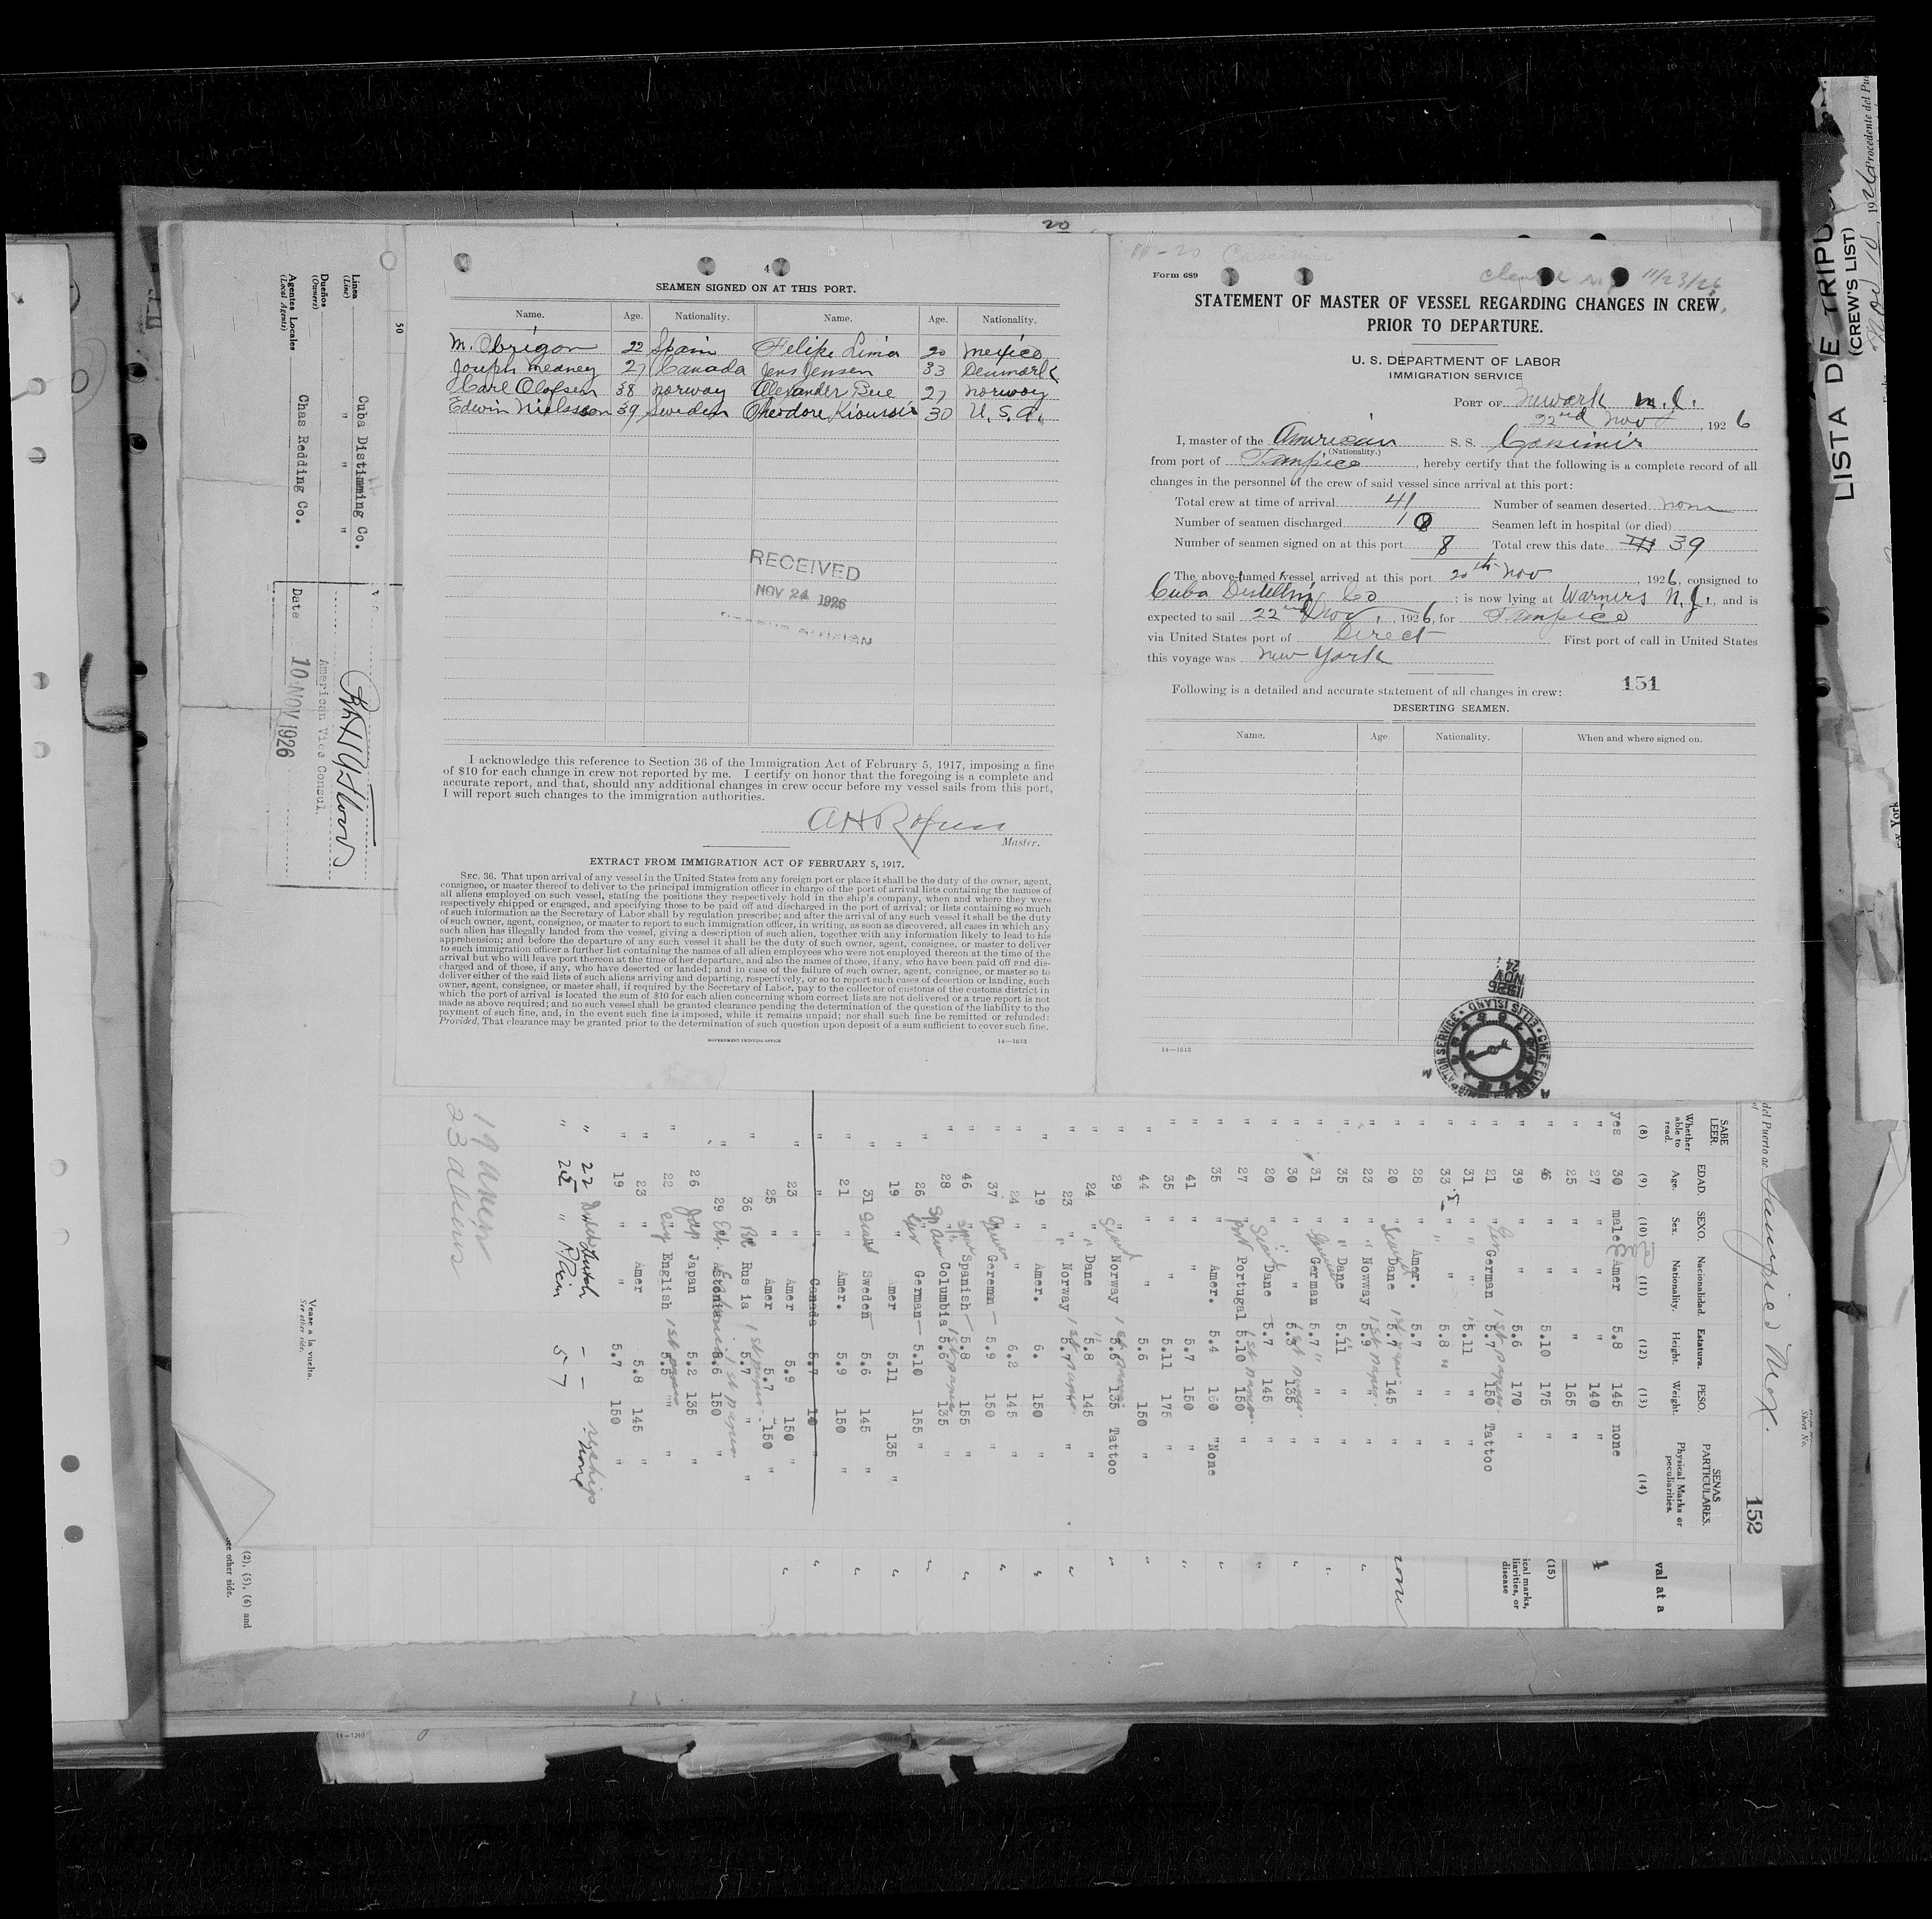 20
4
SEAMEN SIGNED ON AT THIS PORT.
Name. Age. Nationality. Name. Age. Nationality.
M. Obrigon 22 Spain Felipe Lima 20 Mexico
Joseph Meaney 27 Canada Jens Jensen 33 Denmark
Carl Olofsen 38 Norway Alexander Bue 27 Norway
Edwin Nielsson 39 Sweden Theodore 30 U.S.A.
RECEIVED
NOV 24 1926
I acknowledge this reference to Section 36 of the Immigration Act of February 5, 1917, imposing a fine
of $10 for each change in crew not reported by me. I certify on honor that the foregoing is a complete and
accurate report, and that, should any additional changes in crew occur before my vessel sails from this port,
I will report such changes to the immigration authorities.
Master.
EXTRACT FROM IMMIGRATION ACT OF FEBRUARY 5, 1917.
SEC. 36. That upon arrival of any vessel in the United States from any foreign port or place it shall be the duty of the owner, agent,
consignee, or master thereof to deliver to the principal immigration officer in charge of the port of arrival lists containing the names of
all aliens employed on such vessel, stating the positions they respectively hold in the ship's company, when and where they were
respectively shipped or engaged, and specifying those to be paid off and discharged in the port of arrival; or lists containing so much
of such information as the Secretary of Labor shall by regulation prescribe; and after the arrival of any such vessel it shall be the duty
of such owner, agent, consignee, or master to report to such immigration officer, in writing, as soon as discovered, all cases in which any
such alien has illegally landed from the vessel, giving a description of such alien, together with any information likely to lead to his
apprehension; and before the departure of any such vessel it shall be the duty of such owner, agent, consignee, or master to deliver
to such immigration officer a further list containing the names of all alien employees who were not employed thereon at the time of the
arrival but who will leave port thereon at the time of her departure, and also the names of those, if any, who have been paid off and dis-
charged and of those, if any, who have deserted or landed; and in case of the failure of such owner, agent, consignee, or master so to
deliver either of the said lists of such aliens arriving and departing, respectively, or so to report such cases of desertion or landing, such
owner, agent, consignee, or master shall, if required by the Secretary of Labor, pay to the collector of customs of the customs district in
which the port of arrival is located the sum of $10 for each alien concerning whom correct lists are not delivered or a true report is not
made as above required; and no such vessel shall be granted clearance pending the determination of the question of the liability to the
payment of such fine, and, in the event such fine is imposed, while it remains unpaid; nor shall such fine be remitted or refunded:
Provided, That clearance may be granted prior to the determination of such question upon deposit of a sum sufficient to cover such fine.
GOVERNMENT PRINTING OFFICE
14—1613
11-20 Casimir
Form 689
11/23/26
STATEMENT OF MASTER OF VESSEL REGARDING CHANGES IN CREW,
PRIOR TO DEPARTURE.
U. S. DEPARTMENT OF LABOR
IMMIGRATION SERVICE
PORT OF Newark N.J.
22nd Nov, 1926
I, master of the American S. S. Casimir
(Nationality.)
from port of Tampico, hereby certify that the following is a complete record of all
changes in the personnel of the crew of said vessel since arrival at this port:
Total crew at time of arrival 41 Number of seamen deserted none
Number of seamen discharged 10 Seamen left in hospital (or died)
Number of seamen signed on at this port 8 Total crew this date 39
The above-named vessel arrived at this port 20th Nov, 1926, consigned to
Cuba Distilling Co; is now lying at Warners N.J., and is
expected to sail 22nd Nov., 1926, for Tampico
via United States port of Direct First port of call in United States
this voyage was New York
151
Following is a detailed and accurate statement of all changes in crew:
DESERTING SEAMEN.
Name. Age Nationality. When and where signed on.
14—1613
1926
NOV
24
CHIEF ELLIS ISLAND
Linea (Line) Cuba Distimming Co.
Dueños (Owners) " " "
Agentes Locales (Local Agents) Chas Redding Co.
50
American Vice Consul.
Date 10 NOV 1926
LISTA DE TRIPU
(CREW'S LIST)
Nov 10, 1926 Procedente del Pu
del Puerto de Tampico Mex.
Sheet No.
152
SABE LEER. EDAD. SEXO. Nacionalidad. Estatura. PESO. SENAS PARTICULARES.
Whether able to read. Age. Sex. Nationality. Height. Weight. Physical Marks or peculiarities.
(8) (9) (10) (11) (12) (13) (14)
yes 30 male Amer 5.8 145 none
" 27 " " " 140 "
" 25 " " " 165 "
" 46 " " 5.10 175 "
" 39 " " 5.6 170 "
" 21 " German 5.7 150 Tattoo
" 31 " " 5.11 " "
" 33 " " 5.8 " "
" 28 " Amer. 5.7 " "
" 20 " Dane 5.7 145 "
" 23 " Nowway 5.9 " "
" 35 " Dane 5.11 " "
" 31 " German 5.7 " "
" 30 " " 135 "
" 20 " Dane 5.7 145 "
" 27 " Portugal 5.10 150 "
" 35 " Amer. 5.4 160 "None
" 41 " " 5.7 150 "
" 35 " " 5.11 175 "
" 44 " " 5.6 150 "
" 29 " Norway 5.6 135 Tattoo
" 24 " Dane 5.8 145 "
" 23 " Norway 5.7 " "
" 19 " Amer. 6. 150 "
" 24 " " 6.2 145 "
" 37 " Geremn 5.9 150 "
" 46 " Spanish 5.8 155 "
" 28 " Columbia 5.6 135 "
" 26 " German 5.10 155 "
" 19 " mer 5.11 135 "
" 31 " Sweden 5.6 145 "
" 21 " Amer. 5.9 150 "
" " " Canada 5.7 "
" 23 " Amer 5.9 150 "
25 " Amer 5.7 150 "
" 36 Rus ia 5.7 " "
" 29 5.6 150 "
26 Japan 5.2 135 "
" 22 English 5.5 " "
" 23 " Amer 5.8 145 "
" 19 " " 5.7 150 "
" 22 Dutch — — None
" 25 " 5 7 reship
19 Amer
23 aliens
Vease a la vuelta.
See other side.
val at a
(15)
ical marks,
liarities, or
disease
none
(2), (5), (6) and
ee other side.
14—1240